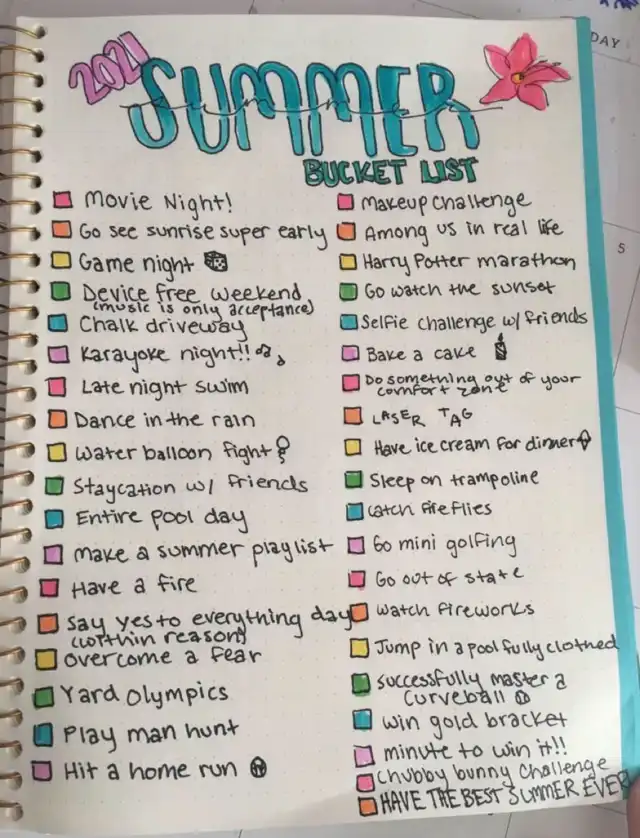 2021
SUMMER
BUCKET LIST
Movie Night!
Go see sunrise super early
Game night
Device free weekend
(music is only acceptance)
Chalk driveway
Karayoke night!!
Late night swim
Dance in the rain
Water balloon fight
Staycation w/ friends
Entire pool day
make a summer playlist
Have a fire
Say yes to everything day
(worthin reason)
overcome a fear
Yard Olympics
Play man hunt
Hit a home run
makeup challenge
Among us in real life
Harry Potter marathon
Go watch the sunset
Selfie challenge w/ friends
Bake a cake
Do something out of your
comfort zone
LASER TAG
Have ice cream for dinner
Sleep on trampoline
catch fireflies
Go mini golfing
Go out of state
watch fireworks
Jump in a pool fully clothed
successfully master a
curveball
win gold bracket
minute to win it!!
chubby bunny challenge
HAVE THE BEST SUMMER EVER
DAY
5